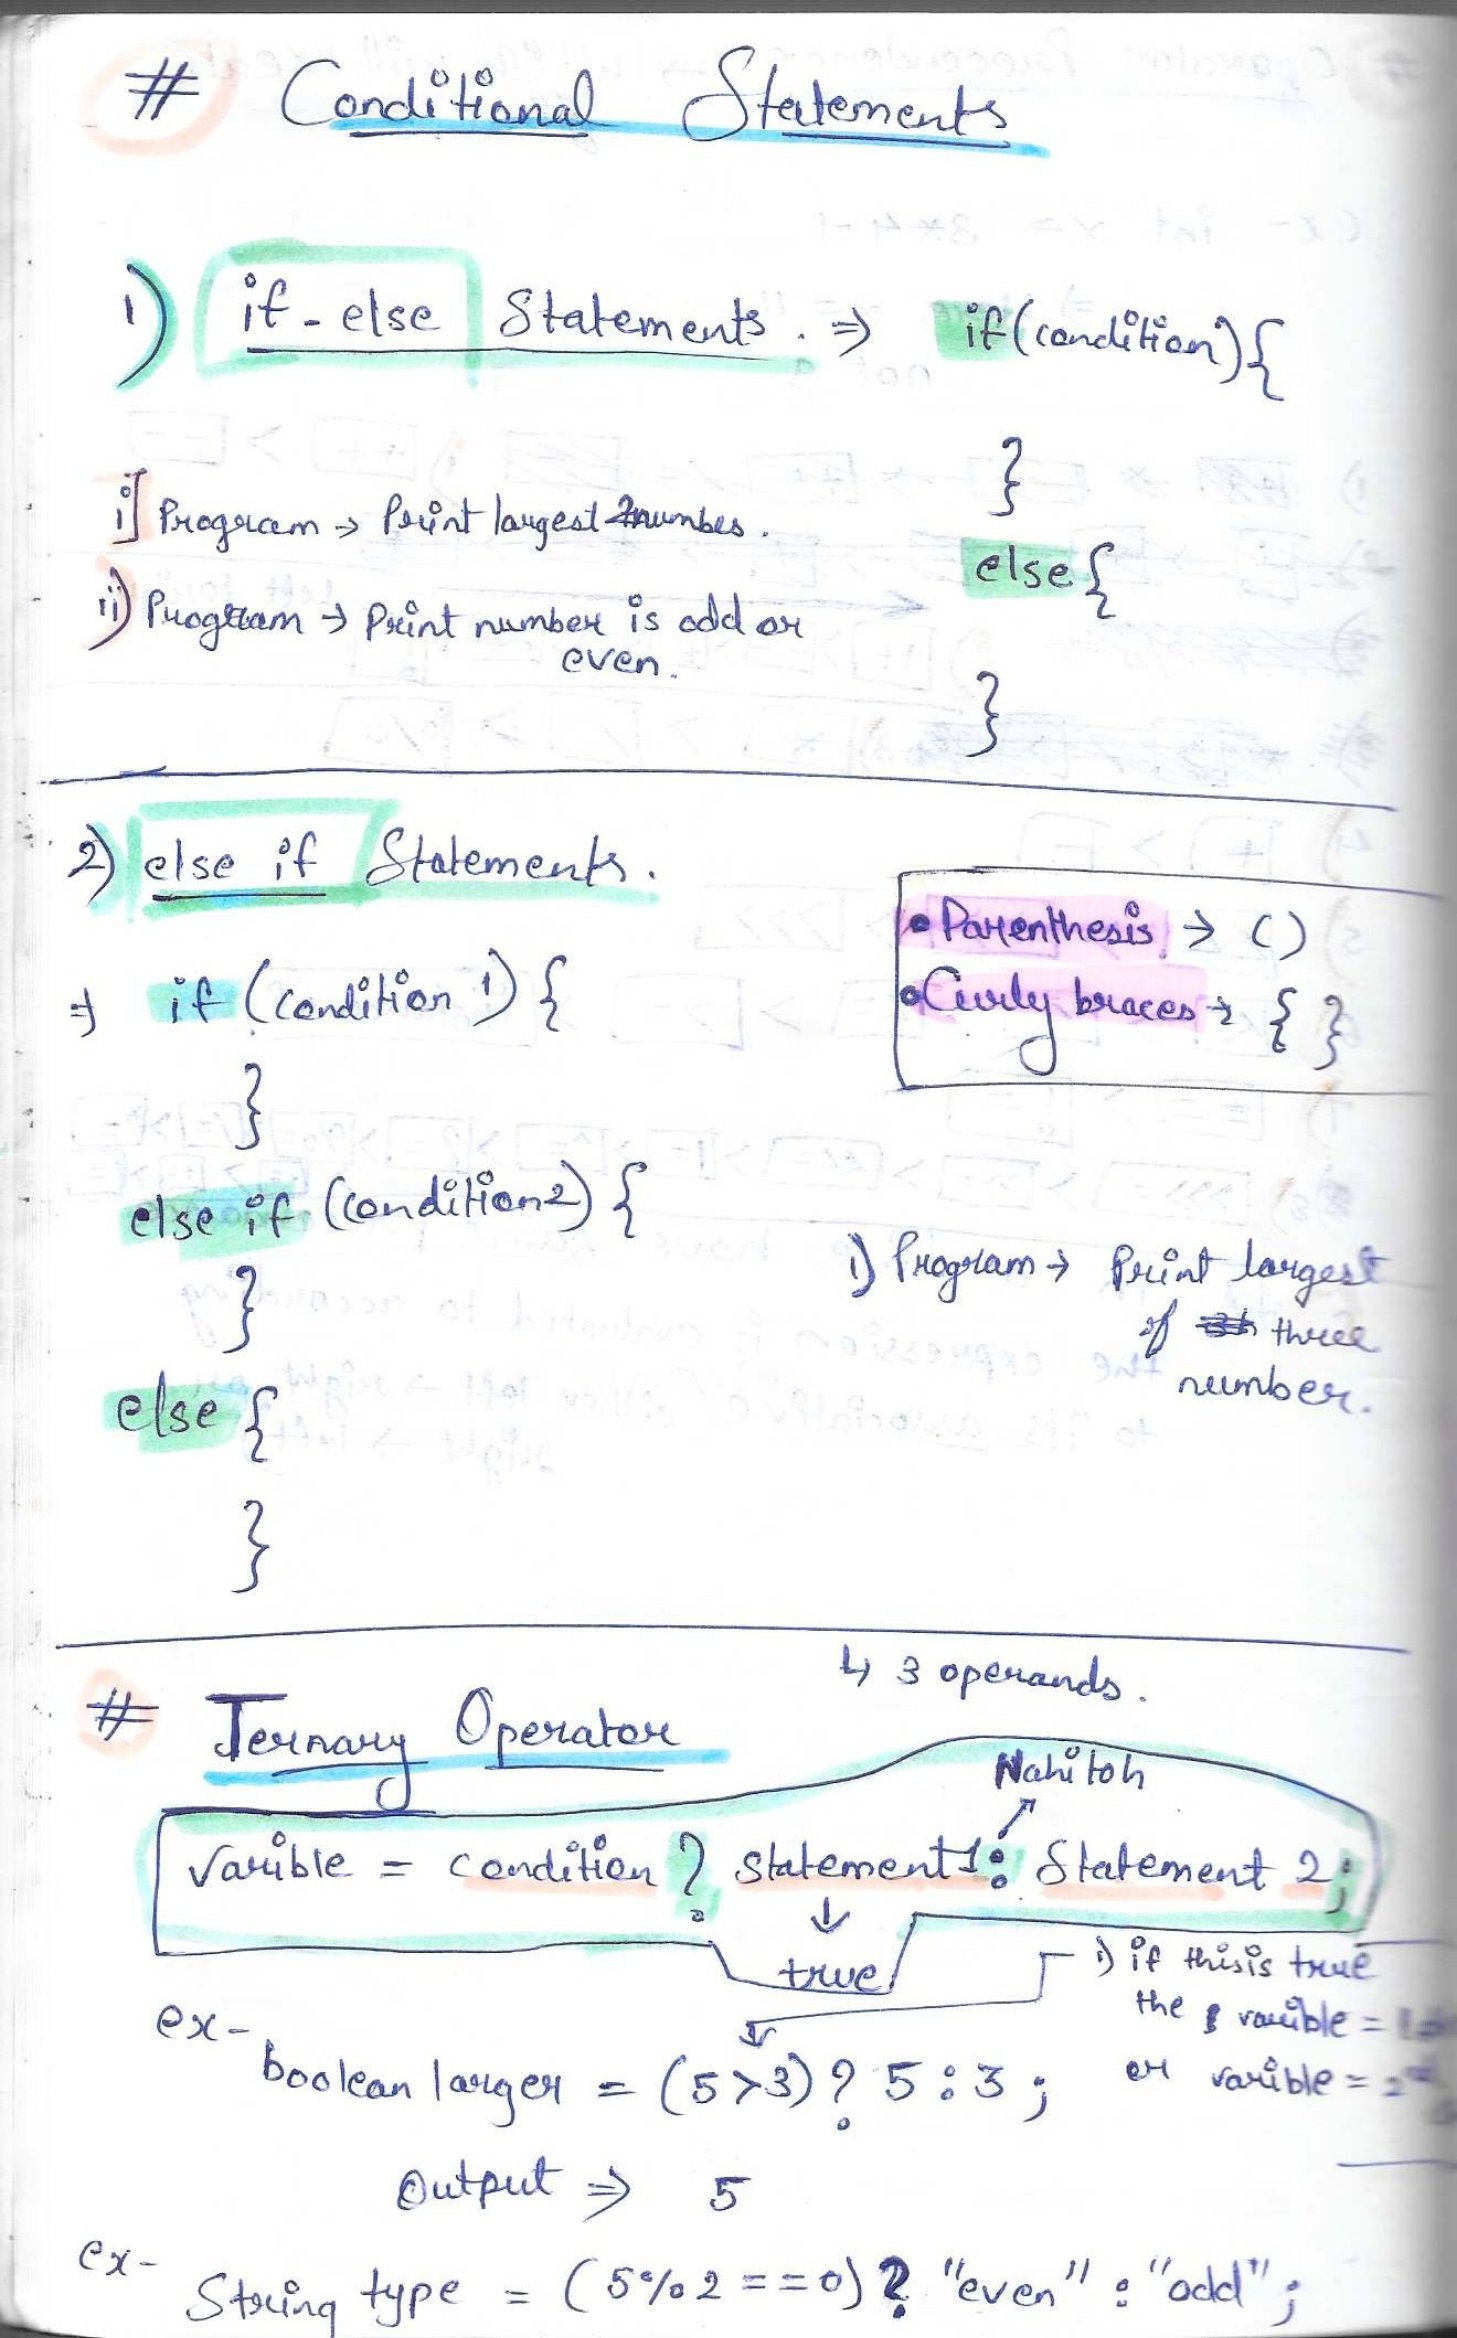 # Conditional Statements
1) if-else Statements. ⇒ if(condition){
}
else{
}
i] Program → Print largest number.
ii) Program → Print number is odd or
even.
2) else if Statements.
• Parenthesis → ()
• Curly braces → { }
⇒ if (condition 1) {
}
else if (condition2) {
}
else {
}
i) Program → Print largest
of three
number.
# Ternary Operator
↳ 3 operands.
Nahitoh
varible = condition ? statement1 : Statement 2;
↓
true
i) if this is true
the varible =
or varible = 2nd
ex-
boolean larger = (5>3) ? 5 : 3 ;
Output ⇒ 5
ex-
String type = (5%2 == 0) ? "even" : "odd" ;